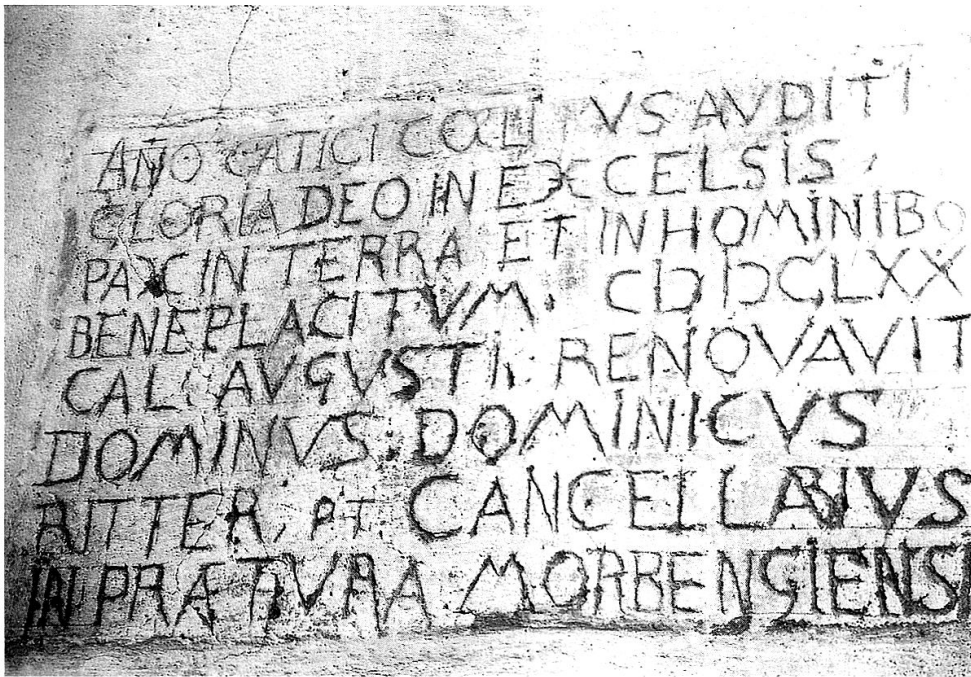 AÑO CATICI COELI VS AVDITI
GLORIA DEO IN EXCELSIS,
PAX IN TERRA ET IN HOMINIBO
BENEPLACITVM. CIƆ IƆCLXX
CAL: AVGVSTI. RENOVAVIT
DOMINVS: DOMINICVS
RITTER, PT CANCELLARIVS
IN PRÆTVRA MORBENGIENSI